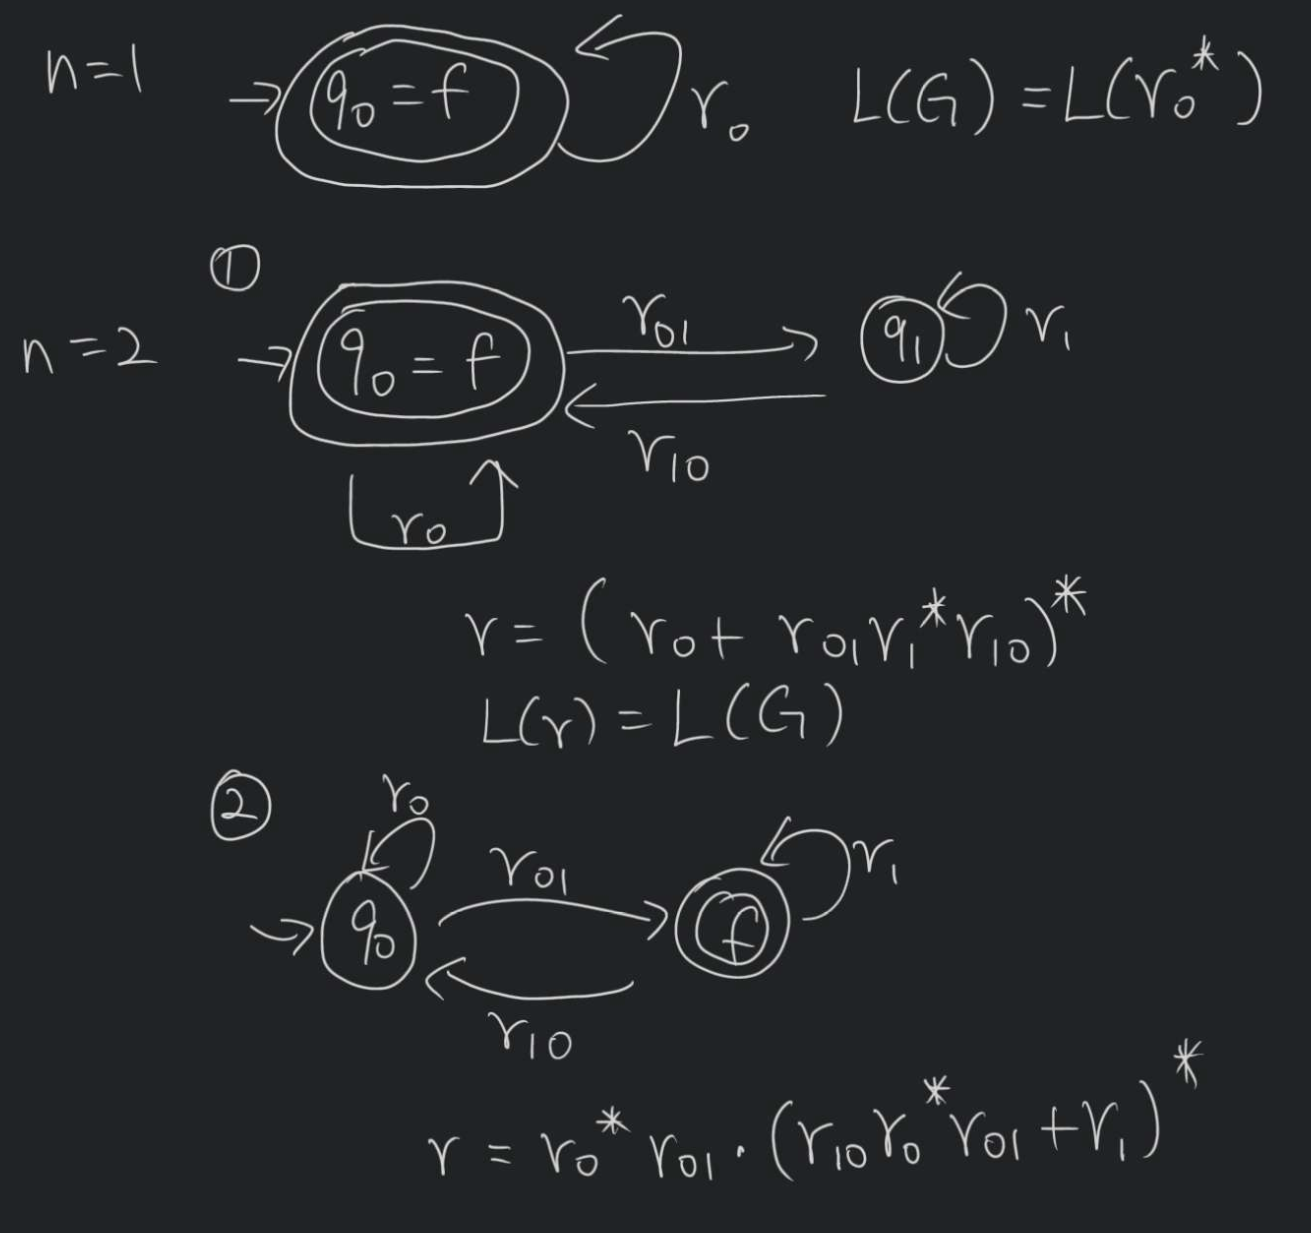 n=1 → q₀=f r₀ L(G)=L(r₀*)
①
n=2 → q₀=f r₀₁ q₁ r₁
r₁₀
r₀
r=(r₀+r₀₁r₁*r₁₀)*
L(r)=L(G)
② r₀
→ q₀ r₀₁ f r₁
r₁₀
r=r₀*r₀₁·(r₁₀r₀*r₀₁+r₁)*